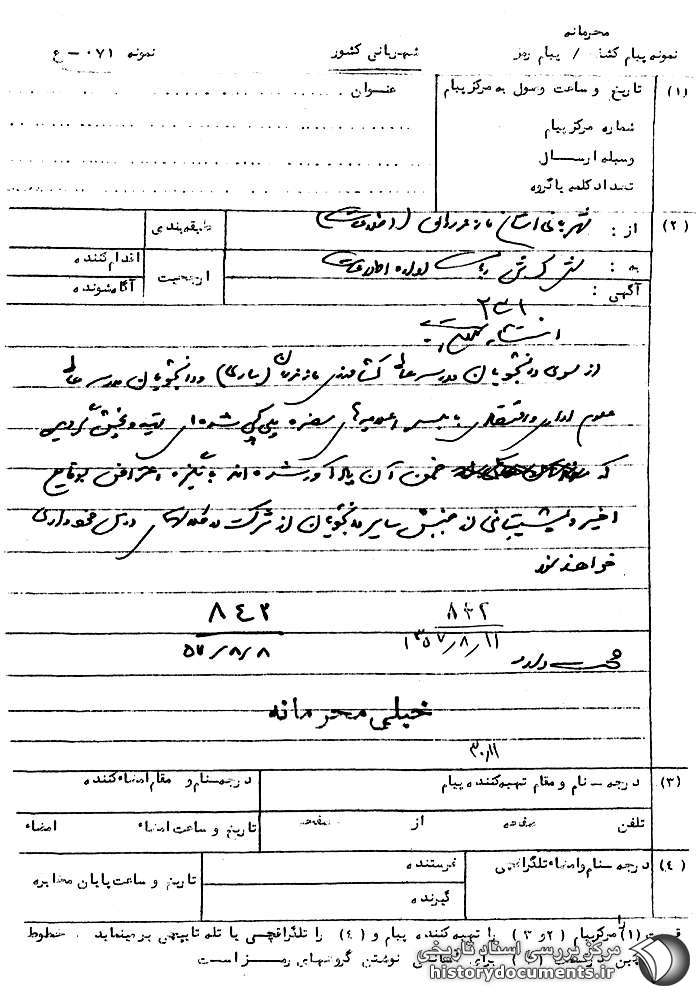 محرمانه
نمونه پیام کشف / پیام رمز
شهربانی کشور
نمونه ۰۷۱ - ع
(۱) تاریخ و ساعت وصول به مرکز پیام
عنوان
شماره مرکز پیام
وسیله ارسال
تعداد کلمه یا گروه
(۲) از : شهربانی استان مازندران (اطلاعات)
طبقه بندی
به : ریاست اداره اطلاعات
ارجحیت
اقدام کننده
آگهی :
آگاه شونده
۲۳۱
از سوی دانشجویان مدرسه عالی کشاورزی مازندران (ساری) و دانشجویان مدرسه عالی
علوم اداری و بابلسر اعلامیه های پلی کپی شده ای تهیه و پخش گردیده
که ضمن آن یادآور شده اند با انگیزه اعتراض بوقایع
اخیر و پشتیبانی از جنبش سایر دانشجویان از شرکت در کلاسهای درس خودداری
خواهند نمود
۸۴۲
۵۷/۸/۸
۸۴۲
۱۳۵۷/۸/۱۱
خیلی محرمانه
۳۰/۱۱
(۳) درجه - نام و مقام تهیه کننده پیام
درجه نام و مقام امضاء کننده
تلفن صفحه از صفحه
تاریخ و ساعت امضاء امضاء
(۴) درجه - نام و امضاء تلگرافچی
فرستنده
گیرنده
تاریخ و ساعت پایان مخابره
قسمت (۱) را مرکز پیام (۲ و ۳) را تهیه کننده پیام و (۴) را تلگرافچی یا تله تایپچی پر مینماید . خطوط
برای نوشتن گروههای رمز است
مرکز بررسی اسناد تاریخی
historydocuments.ir